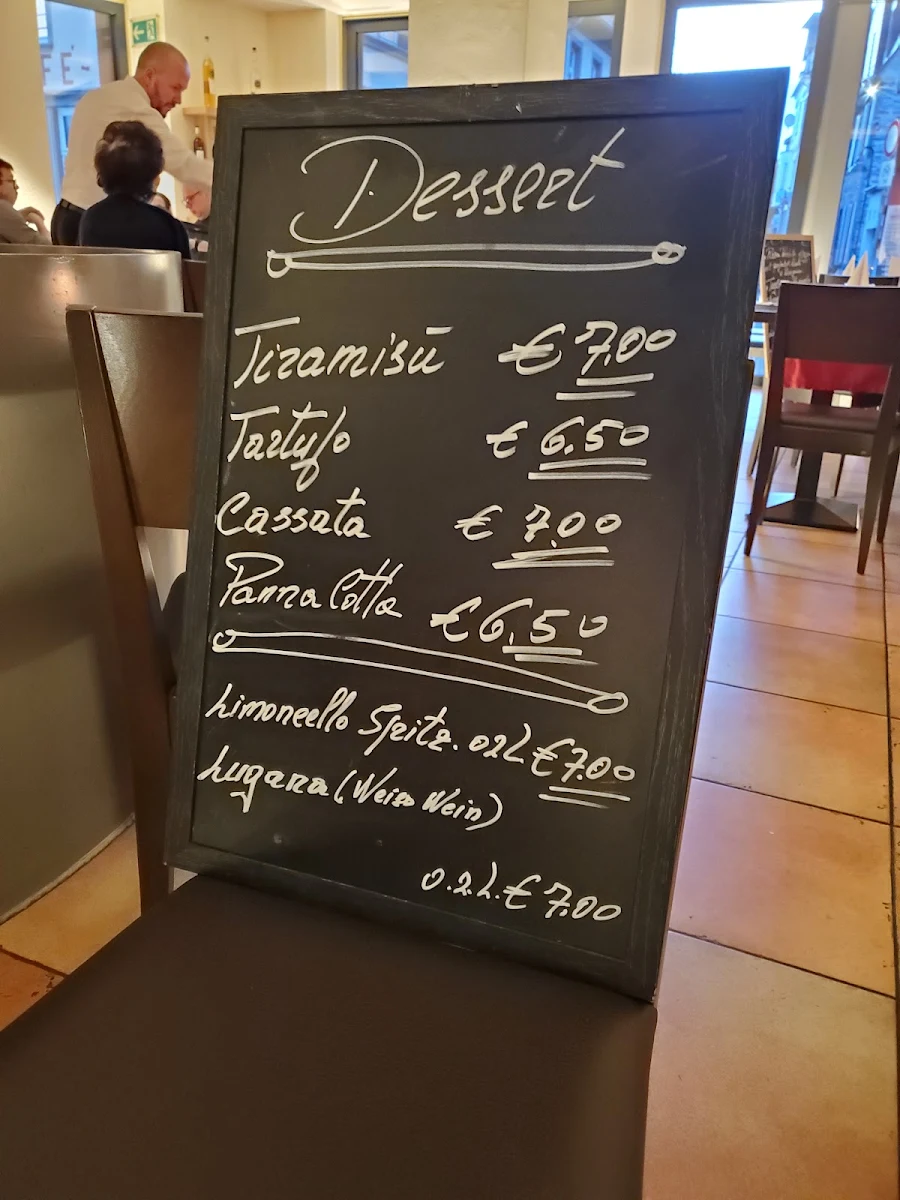 FÉ -
Dessert
Tiramisū € 7.00
Tartufo € 6.50
Cassata € 7.00
Panna Cotta € 6.50
Limoncello Spritz. 02L € 7.00
Lugana (Weiss Wein)
0.2.L. € 7.00